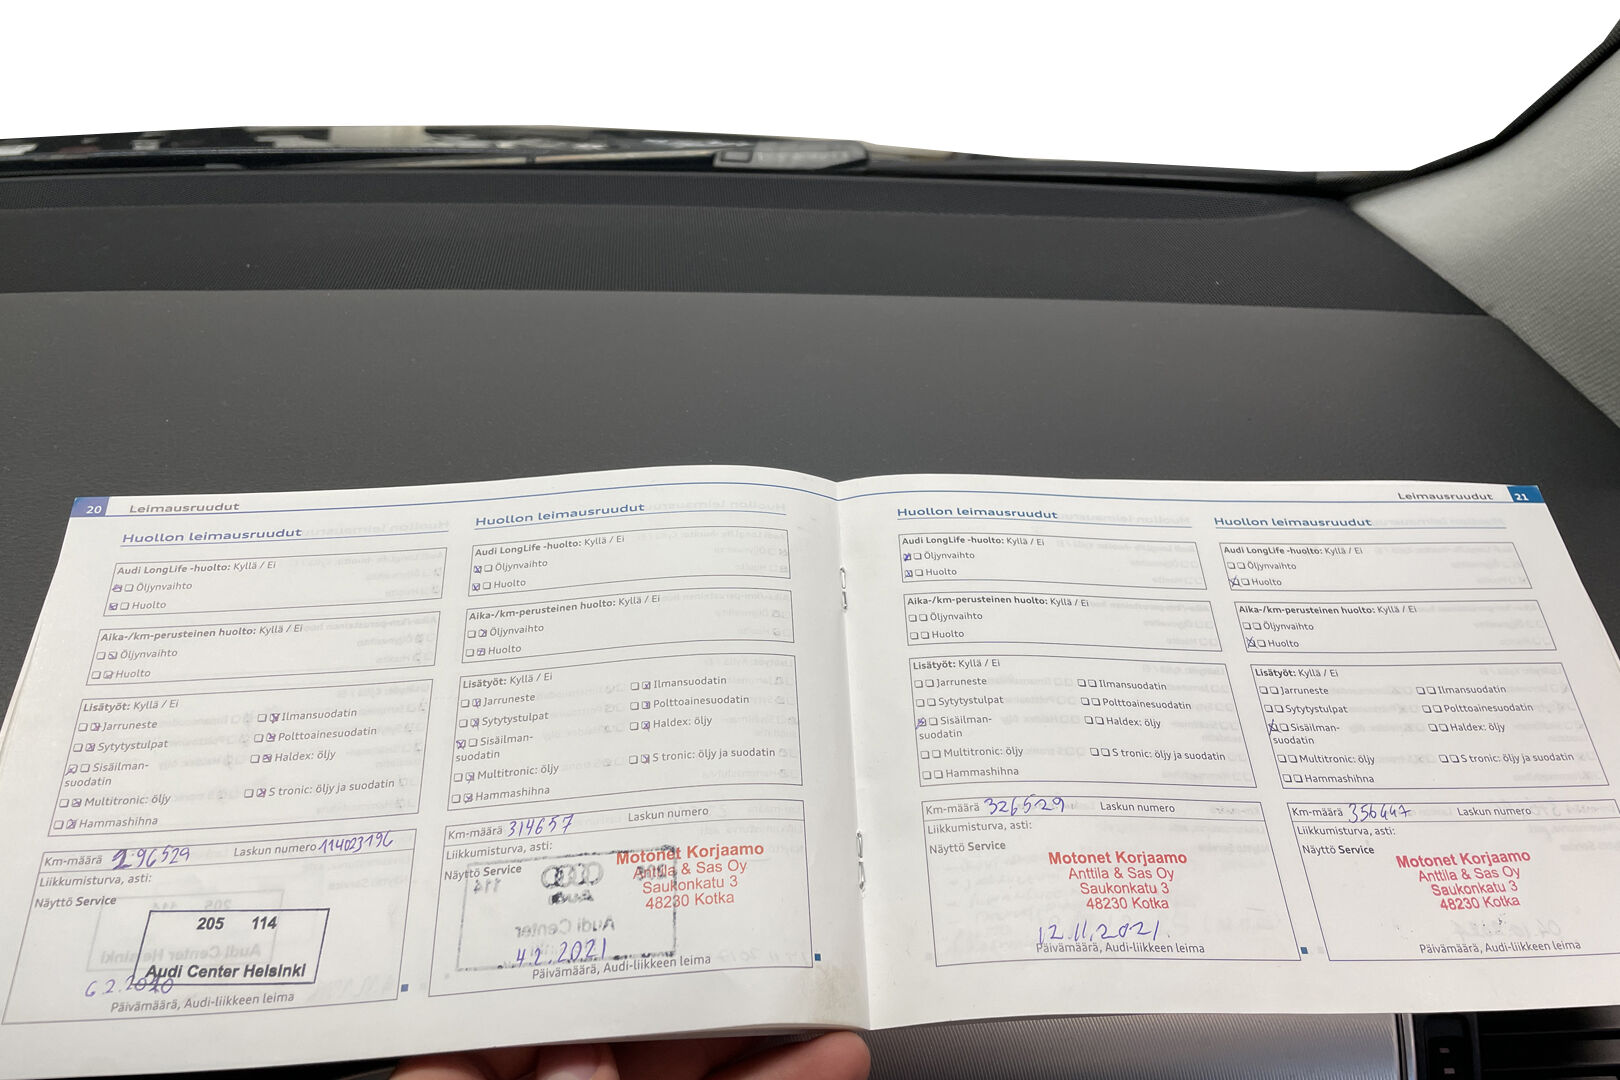 20 Leimausruudut
Huollon leimausruudut
Audi LongLife -huolto: Kyllä / Ei
Öljynvaihto
Huolto
Aika-/km-perusteinen huolto: Kyllä / Ei
Öljynvaihto
Huolto
Lisätyöt: Kyllä / Ei
Jarruneste
Ilmansuodatin
Sytytystulpat
Polttoainesuodatin
Sisäilman-
suodatin
Haldex: öljy
Multitronic: öljy
S tronic: öljy ja suodatin
Hammashihna
Km-määrä 296529 Laskun numero 114023196
Liikkumisturva, asti:
Näyttö Service
205 114
Audi Center Helsinki
6.2.2020
Päivämäärä, Audi-liikkeen leima
Huollon leimausruudut
Audi LongLife -huolto: Kyllä / Ei
Öljynvaihto
Huolto
Aika-/km-perusteinen huolto: Kyllä / Ei
Öljynvaihto
Huolto
Lisätyöt: Kyllä / Ei
Jarruneste
Ilmansuodatin
Sytytystulpat
Polttoainesuodatin
Sisäilman-
suodatin
Haldex: öljy
Multitronic: öljy
S tronic: öljy ja suodatin
Hammashihna
Km-määrä 314657 Laskun numero
Liikkumisturva, asti:
Näyttö Service
Motonet Korjaamo
Anttila & Sas Oy
Saukonkatu 3
48230 Kotka
4.2.2021
Päivämäärä, Audi-liikkeen leima
Leimausruudut 21
Huollon leimausruudut
Audi LongLife -huolto: Kyllä / Ei
Öljynvaihto
Huolto
Aika-/km-perusteinen huolto: Kyllä / Ei
Öljynvaihto
Huolto
Lisätyöt: Kyllä / Ei
Jarruneste
Ilmansuodatin
Sytytystulpat
Polttoainesuodatin
Sisäilman-
suodatin
Haldex: öljy
Multitronic: öljy
S tronic: öljy ja suodatin
Hammashihna
Km-määrä 326529 Laskun numero
Liikkumisturva, asti:
Näyttö Service
Motonet Korjaamo
Anttila & Sas Oy
Saukonkatu 3
48230 Kotka
12.11.2021.
Päivämäärä, Audi-liikkeen leima
Huollon leimausruudut
Audi LongLife -huolto: Kyllä / Ei
Öljynvaihto
Huolto
Aika-/km-perusteinen huolto: Kyllä / Ei
Öljynvaihto
Huolto
Lisätyöt: Kyllä / Ei
Jarruneste
Ilmansuodatin
Sytytystulpat
Polttoainesuodatin
Sisäilman-
suodatin
Haldex: öljy
Multitronic: öljy
S tronic: öljy ja suodatin
Hammashihna
Km-määrä 356447 Laskun numero
Liikkumisturva, asti:
Näyttö Service
Motonet Korjaamo
Anttila & Sas Oy
Saukonkatu 3
48230 Kotka
Päivämäärä, Audi-liikkeen leima